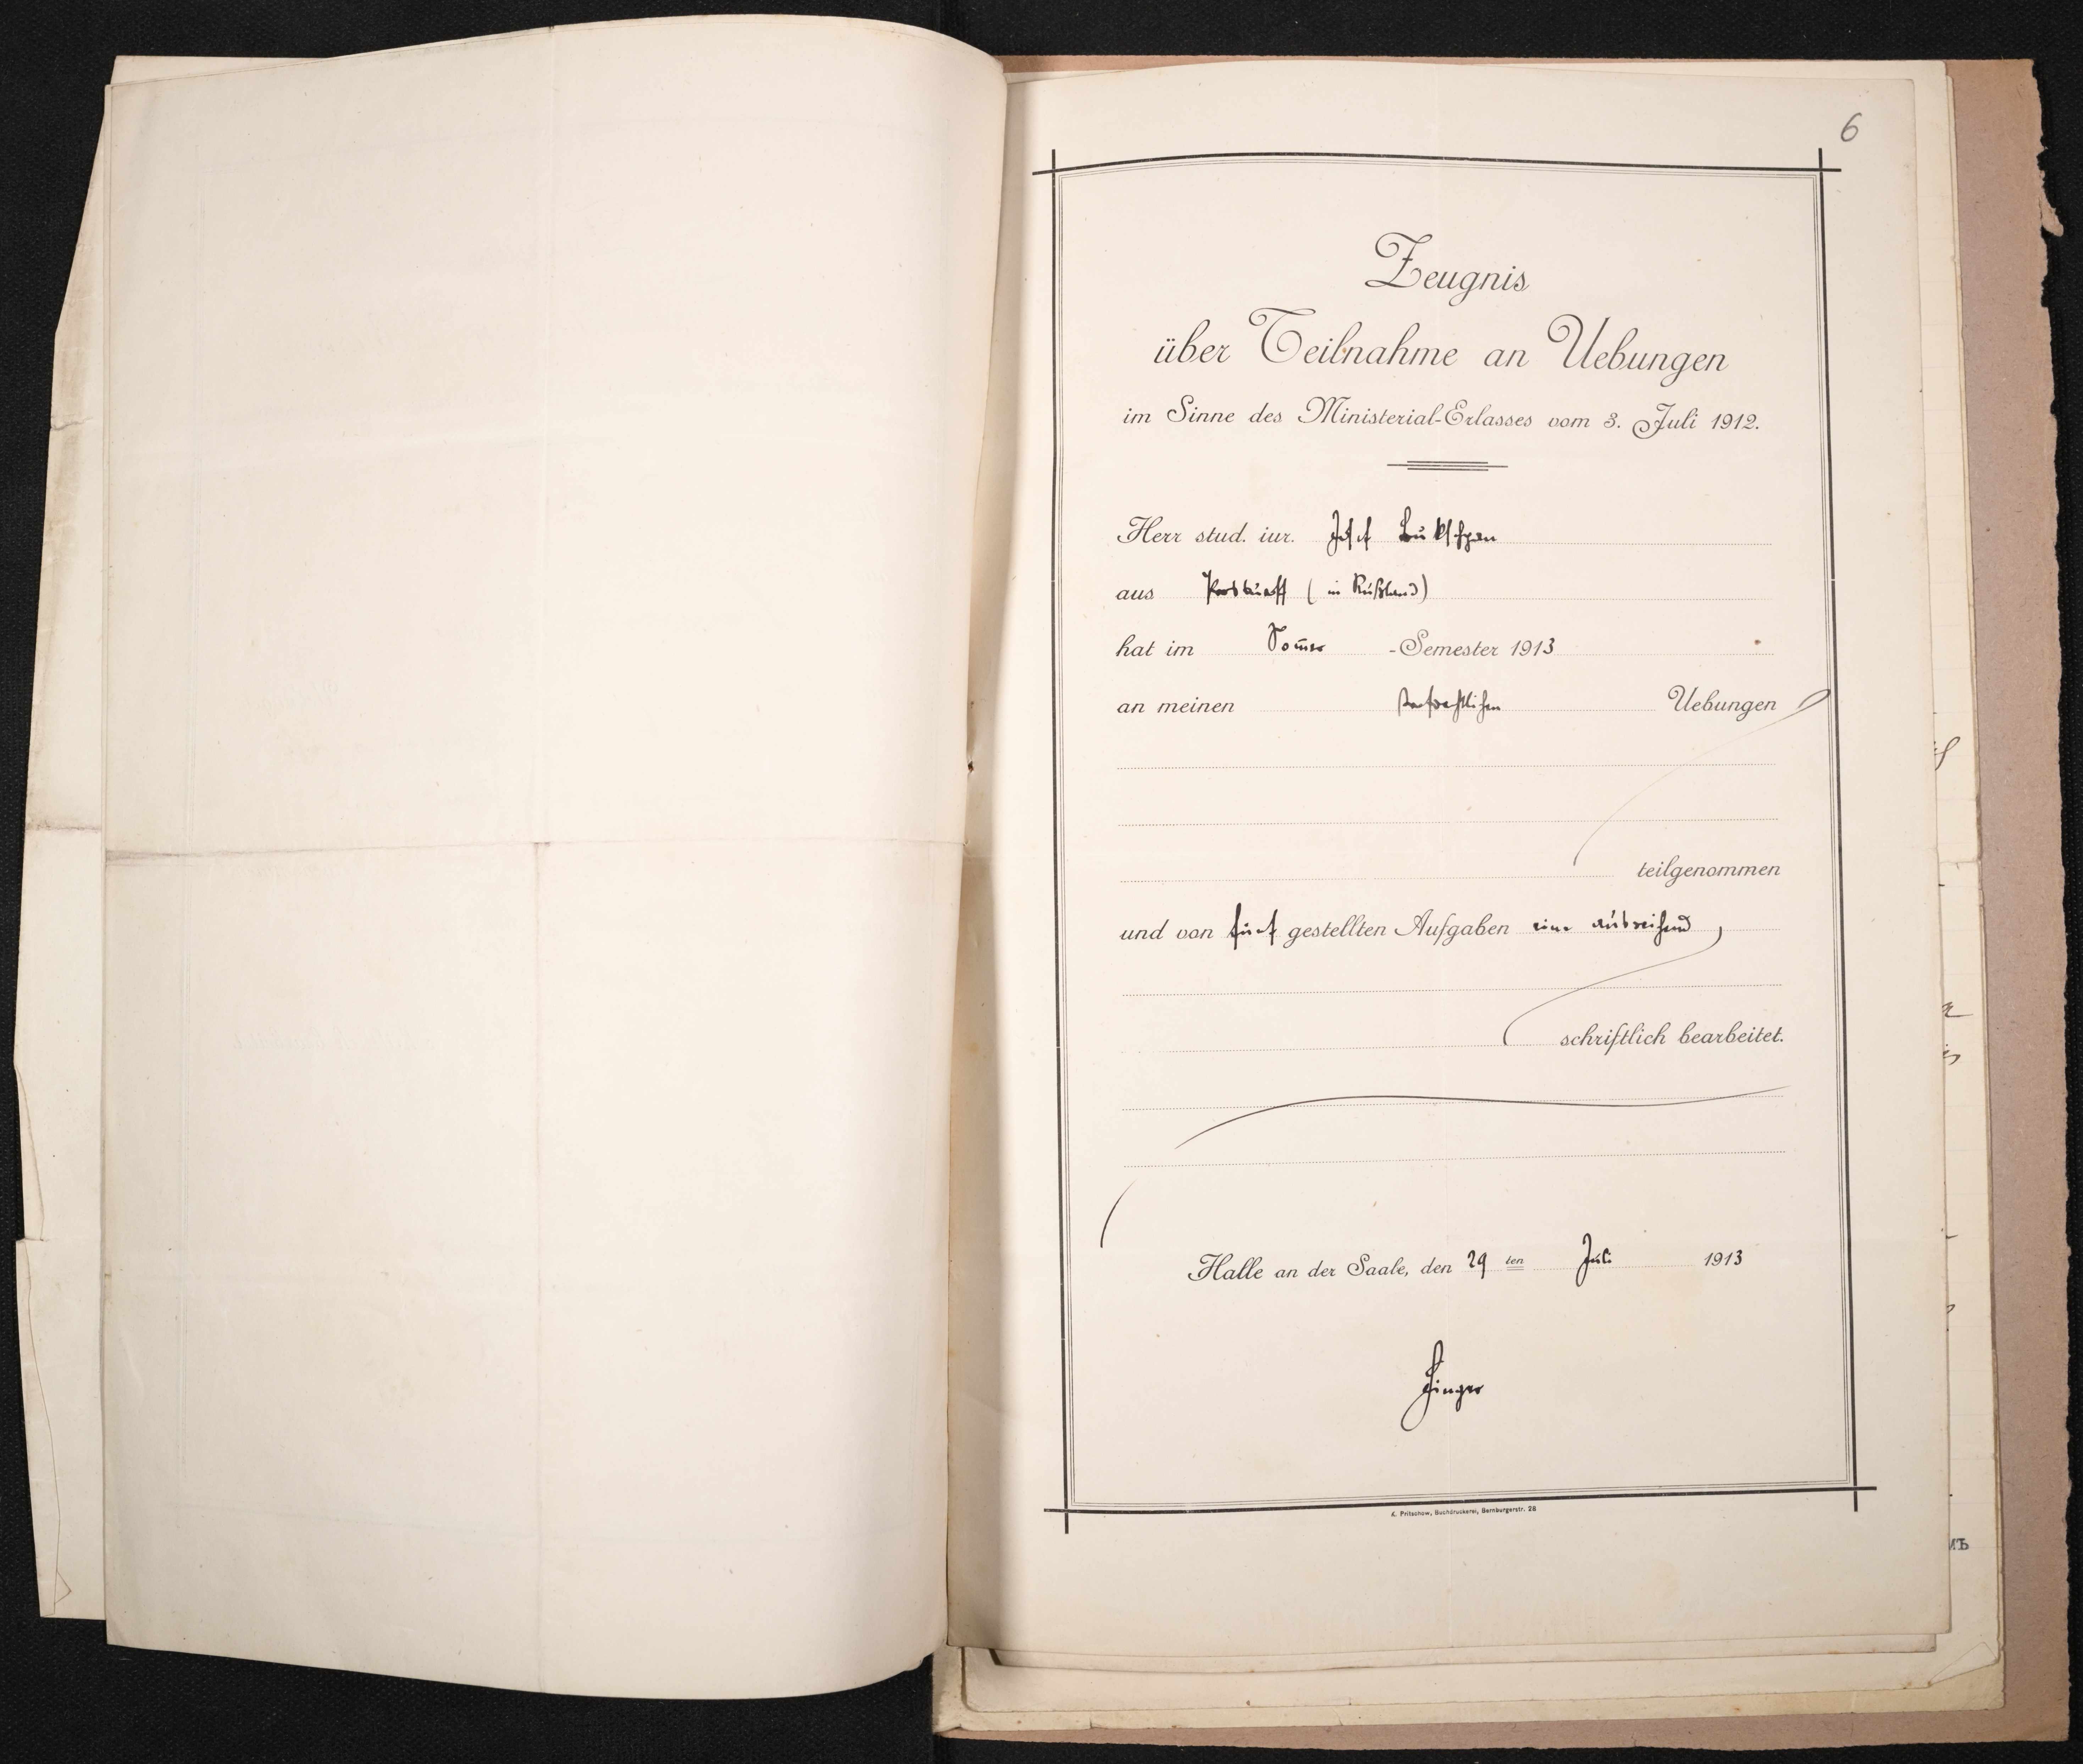 6
Zeugnis
über Teilnahme an Uebungen
im Sinne des Ministerial-Erlasses vom 3. Juli 1912.
Herr stud. iur. Josef
aus Proskuroff (in Rußland)
hat im Som̅er -Semester 1913
an meinen strafrechtlichen Uebungen
teilgenommen
und von fünf gestellten Aufgaben eine ausreichend
schriftlich bearbeitet.
Halle an der Saale, den 29 ten Juli 1913
Finger
A. Pritschow, Buchdruckerei, Bernburgerstr. 28